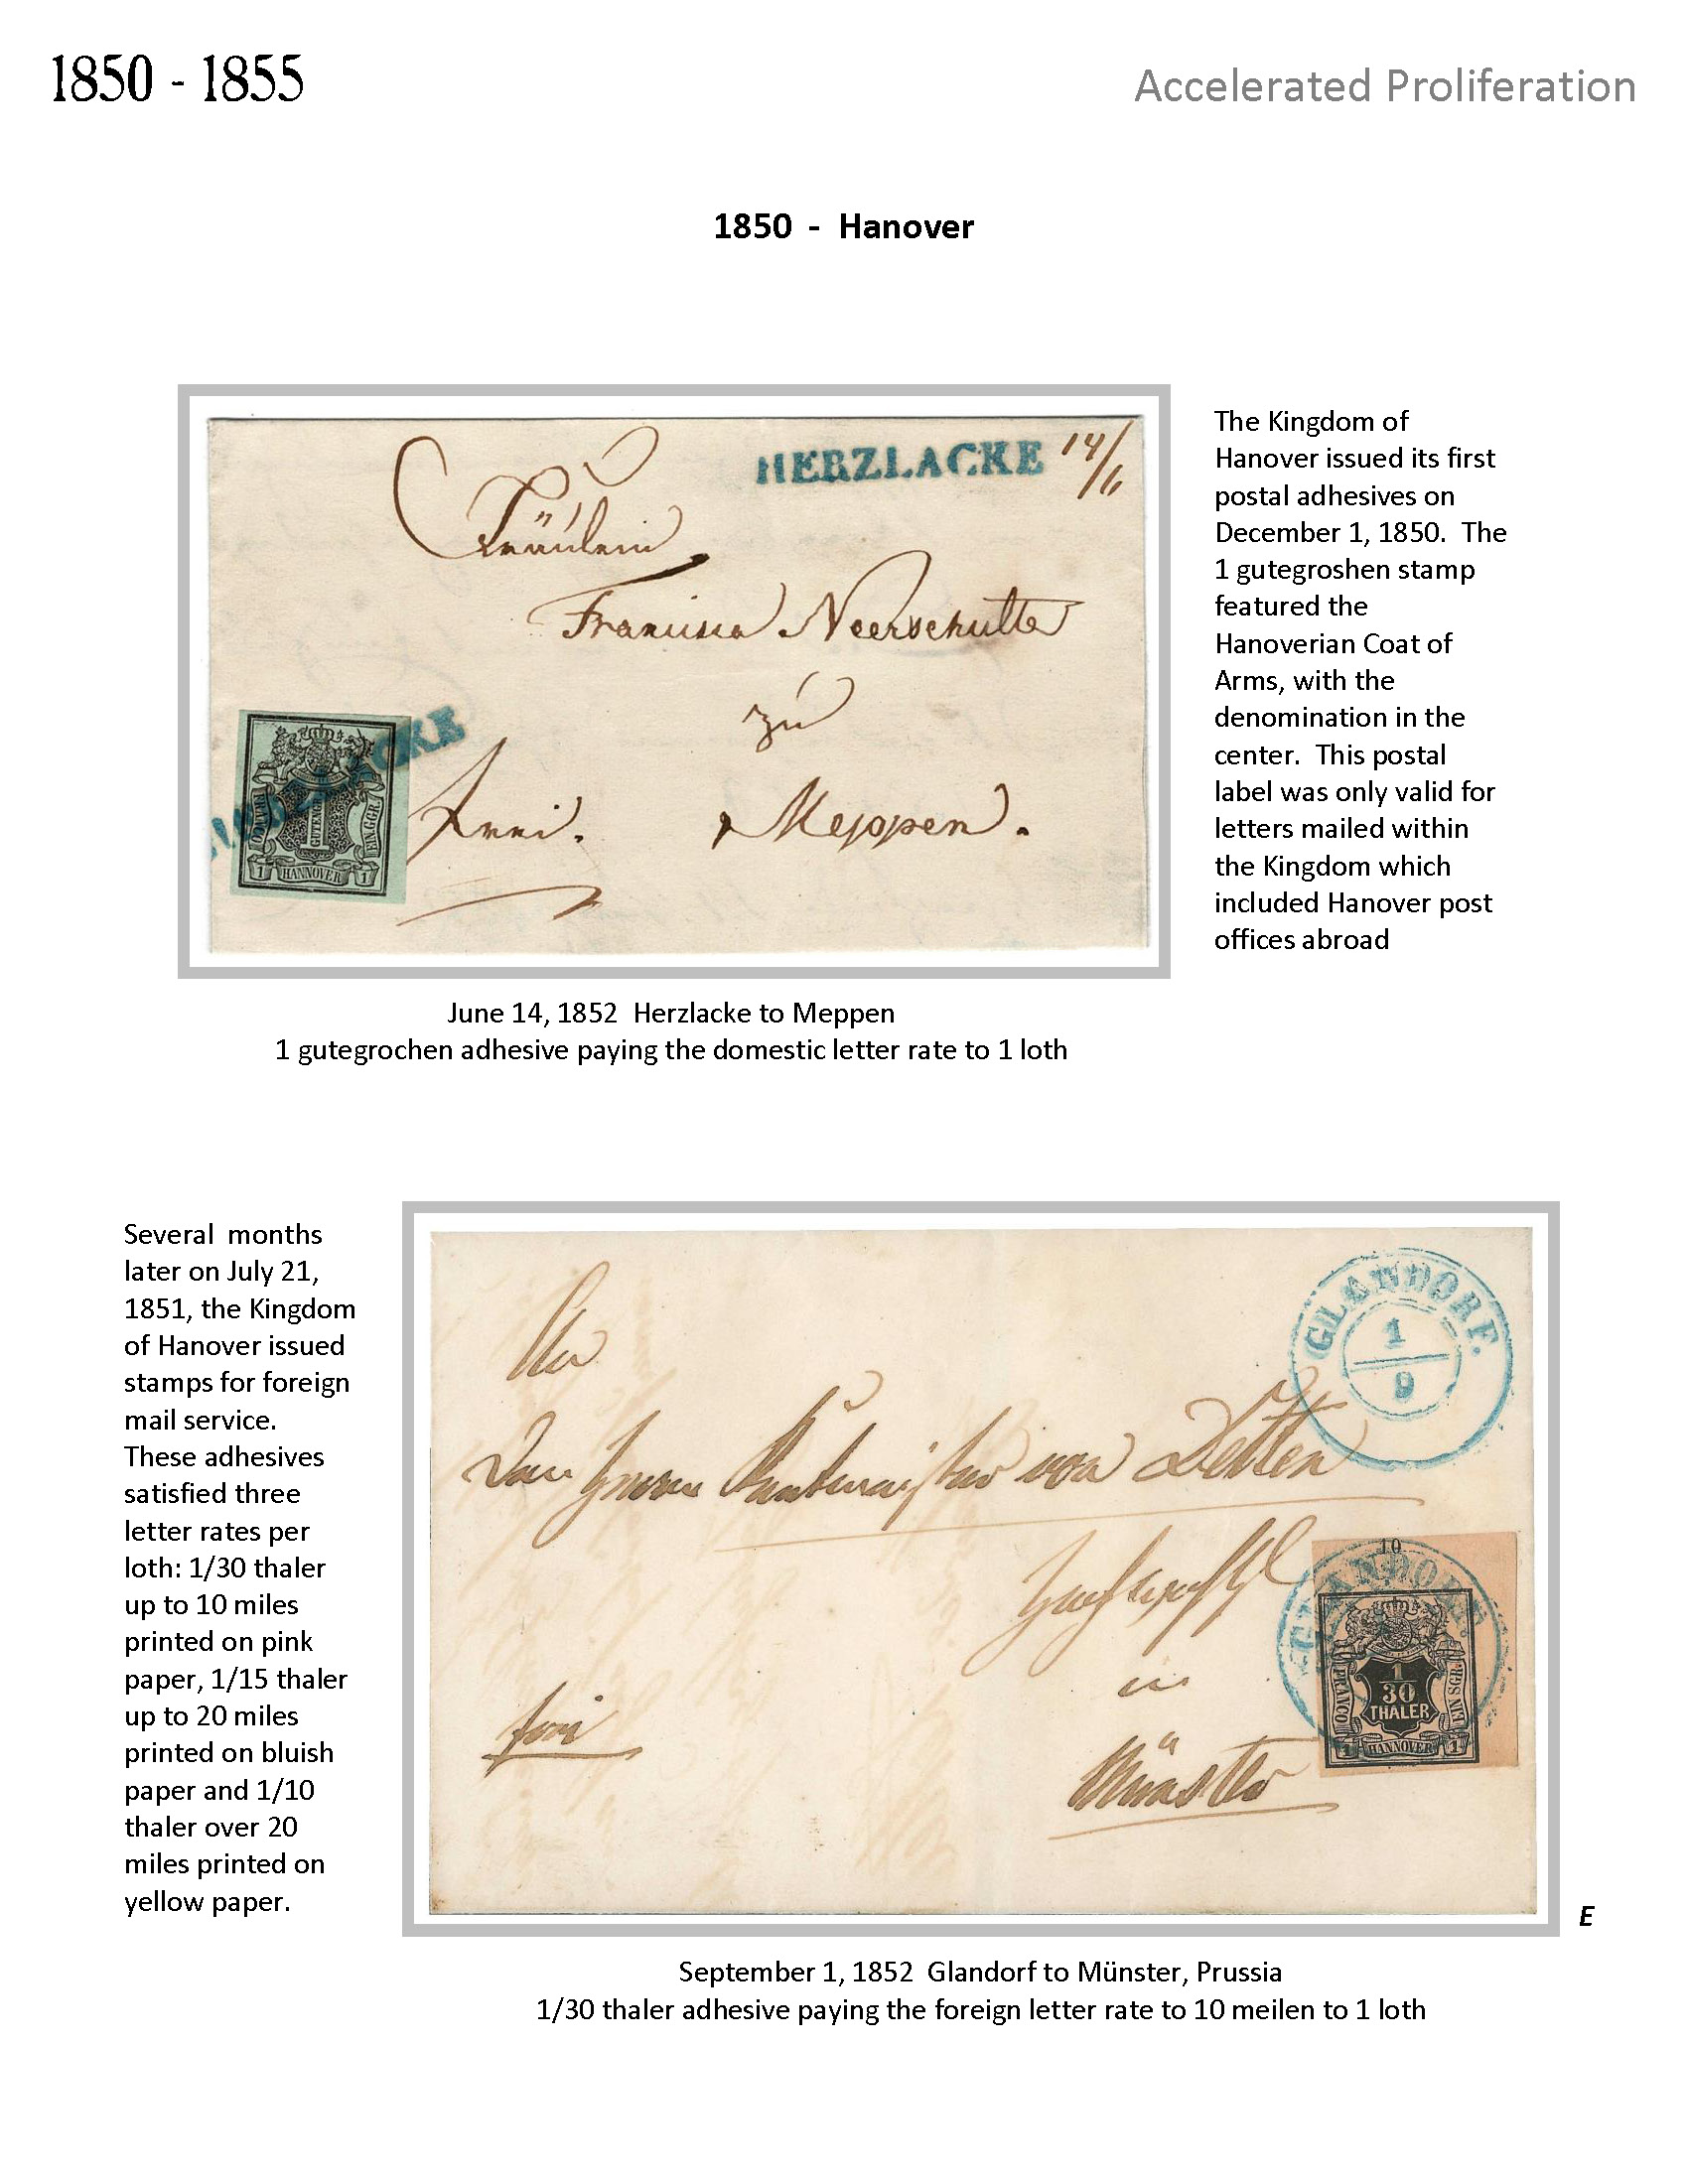 1850 - 1855
Accelerated Proliferation
1850 - Hanover
HERZLACKE 14/6
Fräulein
Francisca Neerschulte
zu
frei. Meppen.
CKE
FRANCO
1 GUTENGR
EIN GGR.
1 HANNOVER 1
The Kingdom of
Hanover issued its first
postal adhesives on
December 1, 1850. The
1 gutegroshen stamp
featured the
Hanoverian Coat of
Arms, with the
denomination in the
center. This postal
label was only valid for
letters mailed within
the Kingdom which
included Hanover post
offices abroad
June 14, 1852 Herzlacke to Meppen
1 gutegrochen adhesive paying the domestic letter rate to 1 loth
Several months
later on July 21,
1851, the Kingdom
of Hanover issued
stamps for foreign
mail service.
These adhesives
satisfied three
letter rates per
loth: 1/30 thaler
up to 10 miles
printed on pink
paper, 1/15 thaler
up to 20 miles
printed on bluish
paper and 1/10
thaler over 20
miles printed on
yellow paper.
GLANDORF.
1
9
An
den Herrn Rentmeister von Detten
in
frei
Münster
10
GLANDORF.
1
30
THALER
FRANCO
EIN SGR.
1 HANNOVER 1
E
September 1, 1852 Glandorf to Münster, Prussia
1/30 thaler adhesive paying the foreign letter rate to 10 meilen to 1 loth